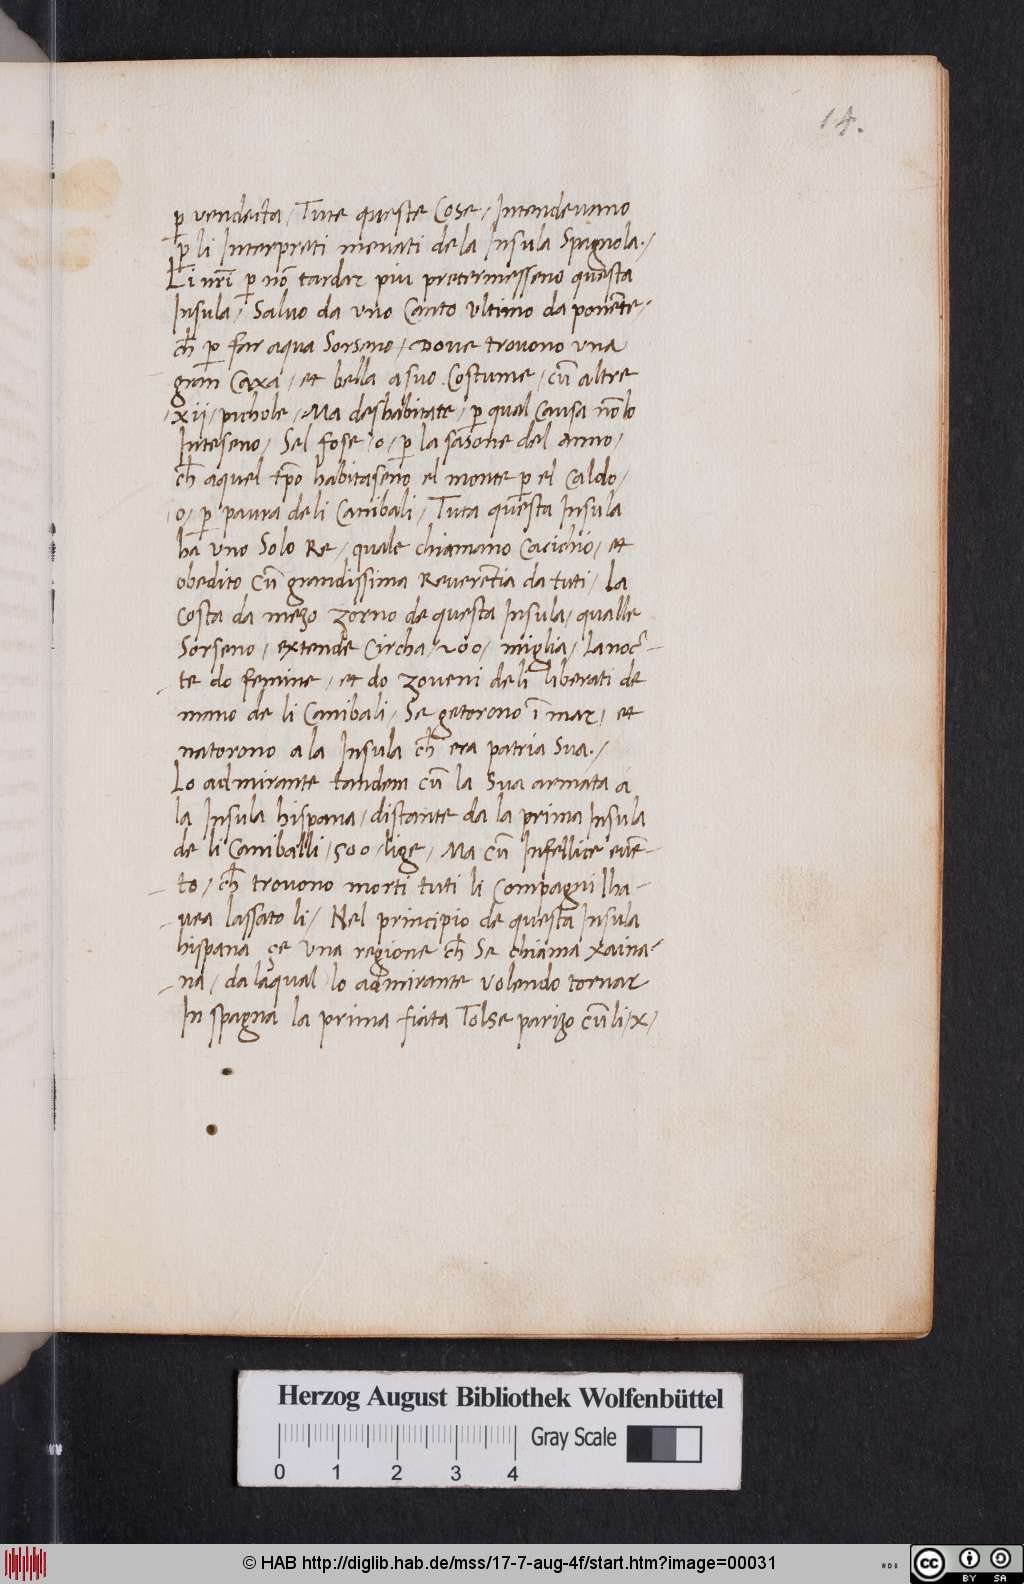 14.
p̱ vendecta / Tute queste Cose / Intendevano
p̱ li Interpreti menati de la Insula Spagnola./
Li nr̃i p̱ nõ tardar piu pretermesseno questa
Insula / Salvo da uno Canto ultimo da ponẽte /
ch̃ p̱ far aqua Sorseno / Dove trovono una
gran Caxa / et bella a suo Costume / cũ altre
/ xij / pichole / Ma deshabitate / p̱ qual Causa nõ lo
Inteseno / Sel fose / o / p̱ la sasone del anno /
ch̃ aquel tp̃o habitaseno el monte p̱ el Caldo /
/ o / p̱ paura de li Canibali / Tuta questa Insula
ha uno Solo Re / quale chiamano Cacichio / et
obedito Cũ grandissima Reverẽtia da tuti / La
Costa da mezo zorno de questa Insula / qualle
Sorseno / extende Circha / 200 / miglia / La noc̃-
-te do femine / et do zoveni deli liberati de
mano de li Canibali / Se getorono ĩ mar / et
natorono a la Insula ch̃ era patria Sua./
Lo admirante tandem cũ la Sua armata a
la Insula hispana / distante da la prima Insula
de li Caniballi / 500 / lige / Ma cũ Infellice evẽ-
-to / ch̃ trovono morti tuti li Compagni lha-
-vea lassato li / Nel principio de questa Insula
hispana çe una regione ch̃ Se chiama Xaina-
-na / da laqual lo admirante volendo tornar
In spagna la prima fiata Tolse parizo cũ li / x /
Herzog August Bibliothek Wolfenbüttel
Gray Scale
0 1 2 3 4
© HAB http://diglib.hab.de/mss/17-7-aug-4f/start.htm?image=00031
cc BY SA